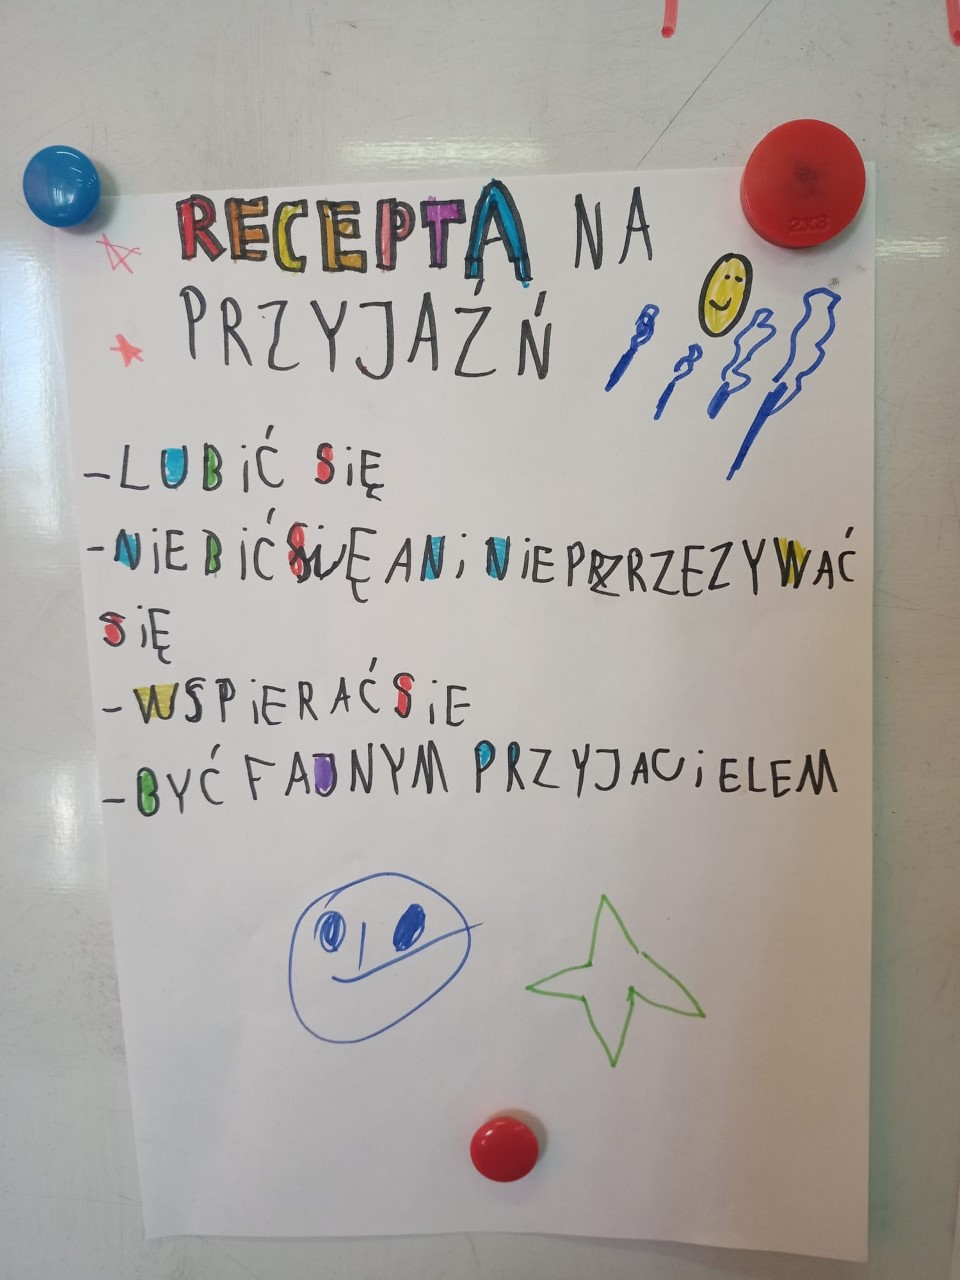 RECEPTA NA
PRZYJAŹŃ
-LUBIĆ SIĘ
-NIE BIĆ SIĘ ANI NIE PRZEZYWAĆ
SIĘ
-WSPIERAĆ SIE
-BYĆ FAJNYM PRZYJACIELEM
2X3